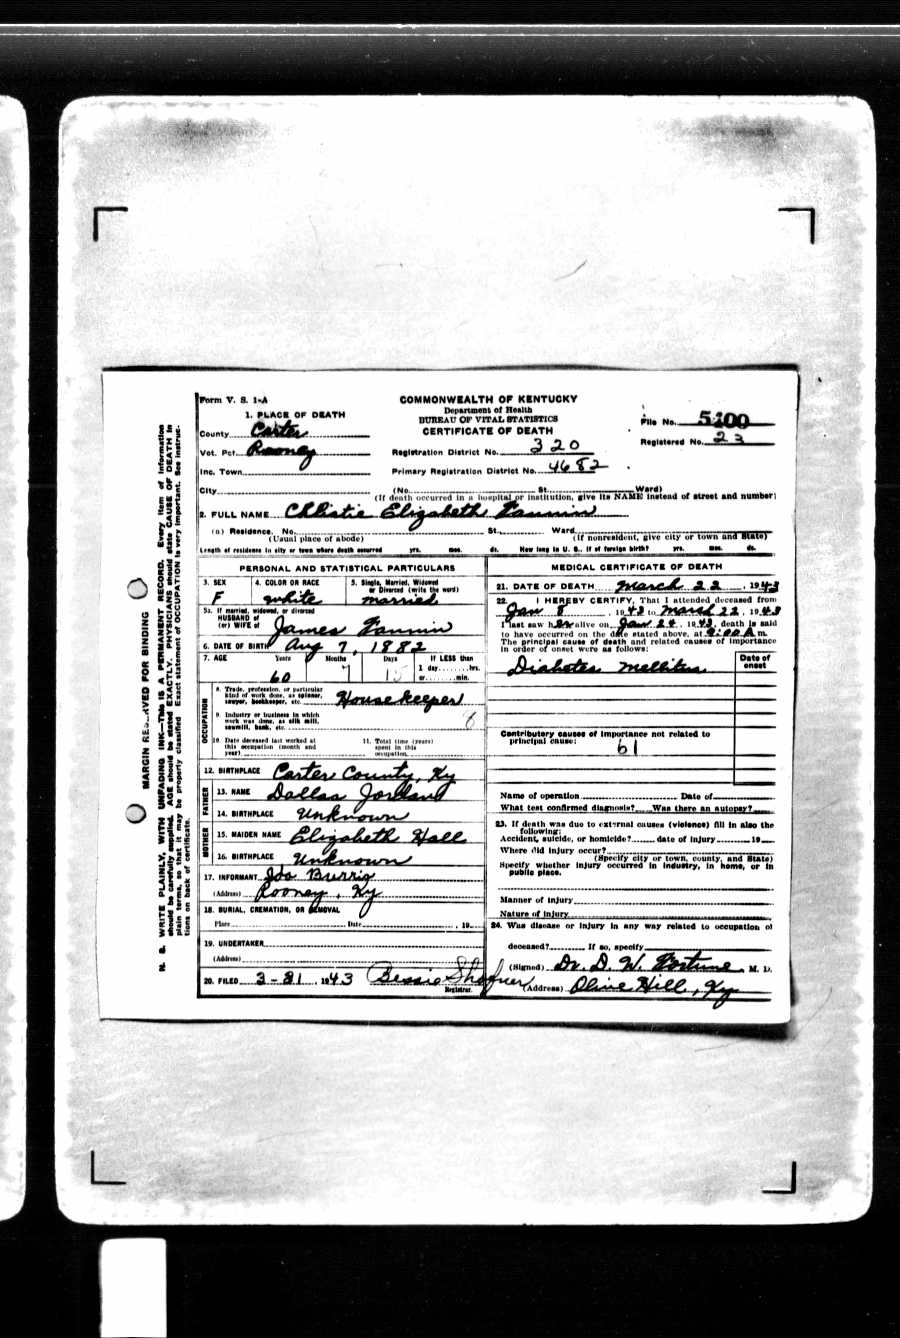 Form V. S. 1-A
COMMONWEALTH OF KENTUCKY
Department of Health
BUREAU OF VITAL STATISTICS
CERTIFICATE OF DEATH
File No. 5100
Registered No. 23
1. PLACE OF DEATH
County Carter
Vot. Pct. Rooney
Registration District No. 320
Inc. Town
Primary Registration District No. 4682
City (No. St. Ward)
(If death occurred in a hospital or institution, give its NAME instead of street and number)
2. FULL NAME Christie Elizabeth Fannin
(a) Residence. No. St. Ward
(Usual place of abode) (If nonresident, give city or town and State)
Length of residence in city or town where death occurred yrs. mos. ds. How long in U. S., if of foreign birth? yrs. mos. ds.
PERSONAL AND STATISTICAL PARTICULARS
3. SEX F
4. COLOR OR RACE white
5. Single, Married, Widowed or Divorced (write the word) married
5a. If married, widowed, or divorced
HUSBAND of
(or) WIFE of James Fannin
6. DATE OF BIRTH Aug 7, 1882
7. AGE Years Months Days If LESS than
1 day hrs.
60 7 15 or min.
OCCUPATION
8. Trade, profession, or particular
kind of work done, as spinner,
sawyer, bookkeeper, etc. Housekeeper
9. Industry or business in which
work was done, as silk mill,
sawmill, bank, etc.
10. Date deceased last worked at
this occupation (month and
year)
11. Total time (years)
spent in this
occupation
12. BIRTHPLACE Carter County, Ky
FATHER
13. NAME Dallas Jordan
14. BIRTHPLACE Unknown
MOTHER
15. MAIDEN NAME Elizabeth Hall
16. BIRTHPLACE Unknown
17. INFORMANT
(Address) Rooney, Ky
18. BURIAL, CREMATION, OR REMOVAL
Place Date , 19
19. UNDERTAKER
(Address)
20. FILED 3-31, 1943 Bessie
Registrar.
MEDICAL CERTIFICATE OF DEATH
21. DATE OF DEATH March 22, 1943
22. I HEREBY CERTIFY, That I attended deceased from
Jan 8, 1943 to March 22, 1943
I last saw her alive on Jan 24, 1943, death is said
to have occurred on the date stated above, at 9:00 A m.
The principal cause of death and related causes of importance
in order of onset were as follows:
Date of onset
Diabetes mellitus
Contributory causes of importance not related to
principal cause:
61
Name of operation Date of
What test confirmed diagnosis? Was there an autopsy?
23. If death was due to external causes (violence) fill in also the
following:
Accident, suicide, or homicide? date of injury 19
Where did injury occur?
(Specify city or town, county, and State)
Specify whether injury occurred in industry, in home, or in
public place.
Manner of injury
Nature of injury
24. Was disease or injury in any way related to occupation of
deceased? If so, specify
(Signed) Dr. D. W. Fortune M. D.
(Address) Olive Hill, Ky
MARGIN RESERVED FOR BINDING
N. B. WRITE PLAINLY, WITH UNFADING INK—This IS A PERMANENT RECORD. Every item of information
should be carefully supplied. AGE should be stated EXACTLY. PHYSICIANS should state CAUSE OF DEATH in
plain terms, so that it may be properly classified. Exact statement of OCCUPATION is very important. See instruc-
tions on back of certificate.